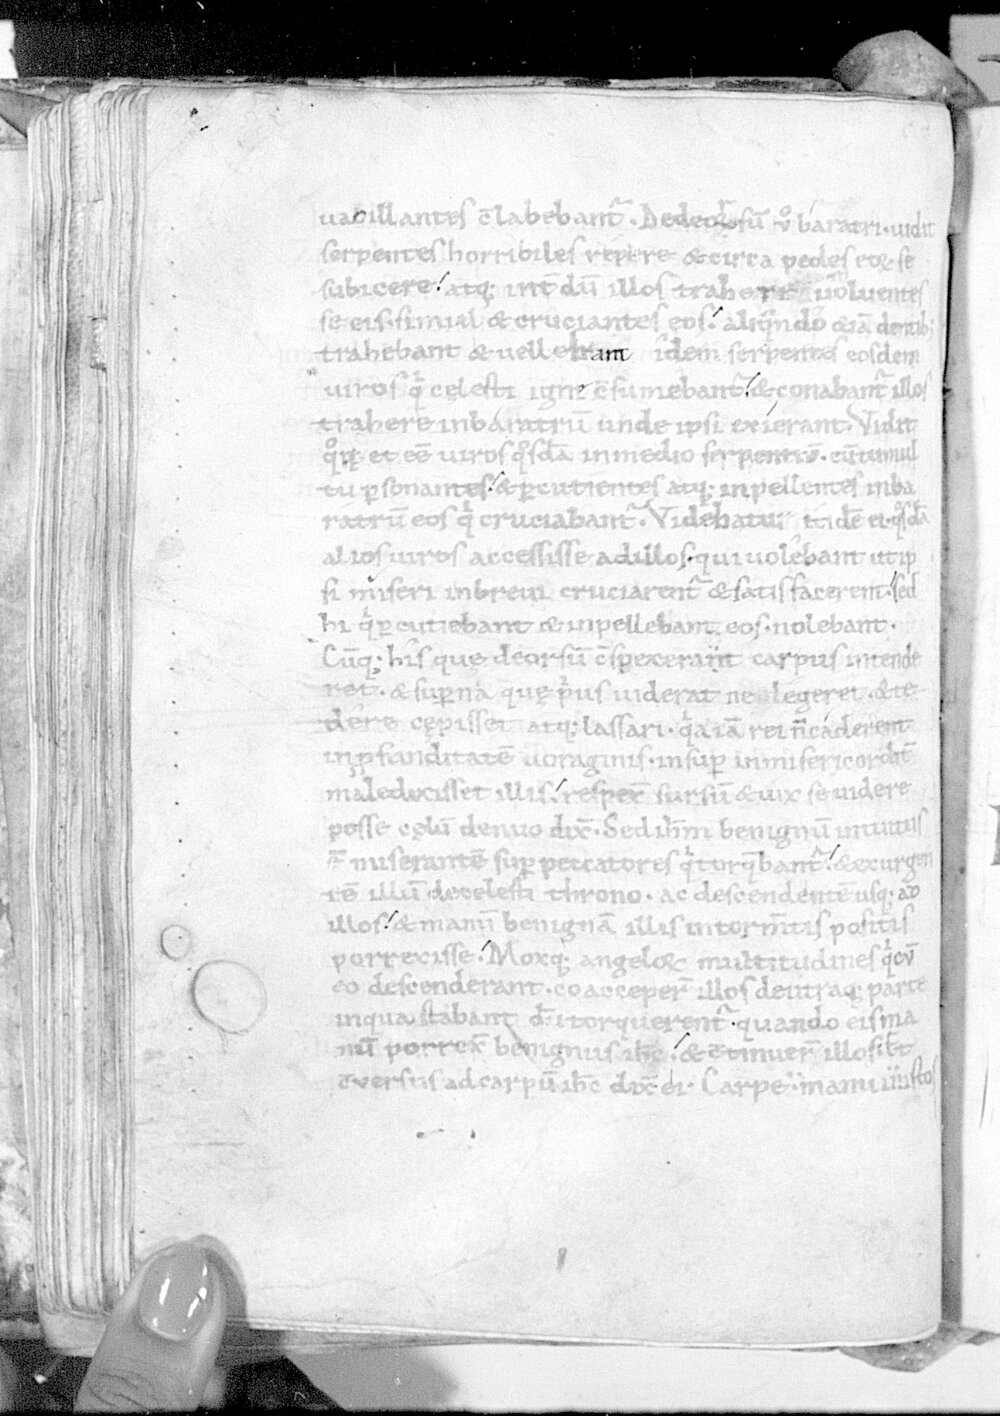 uacillantes c̄labebant᷑. Dedeorsū v̊ báratri. uidit
serpentes horribiles repere & circa pedes eoꝝ se
subicere! atq; int̄dū illos trahere uoluentes
se eis. simul & cruciantes eos! aliqn̄do &iā dentib;
trahebant & uellebant idem serpentes eosdem
uiros qͥ cęlesti igne c̄sumebant᷑! & conabant᷑ illos
trahere inbáratrū unde ipsi exíerant. Vidit
et eē uiros qͦsdā inmedio serpentiū. cū tumul
tu ꝑsonantes! & ꝑcutientes atq; inpellentes inba
ratrū eos qͥ cruciabant᷑. Videbatur itidē ei. qͦsdā
alios uiros accessisse adillos. qui uolébant ut ip
si miseri inbreui cruciarent᷑ & satis facerent! sed
hi qͥ ꝑcutiebant & inpellebant eos. nolebant.
Cūq; hís quę deorsū c̄spexerant carpus intende
ret᷑. & suꝑna quę pͥus uiderat neglegeret. & tę
dére cępisset atq; lassari. qͥa iā rei n̄ cáderent
inꝓfunditatē uoraginis. insuꝑ inmisericordit̄
maledixisset illis! respex̄ sursū & uix se uidere
posse cęlū denuo dix̄. Sed ih̄m benignū intuitus
ē miserantē suꝑ peccatores qͥ torq̄bant᷑! & exurgen
tē illū decelesti throno. ac descendentē usq; ad
illos! & manū benignā illis intorm̄tis positis
porrexisse! Moxq; angeloꝝ multitudines qͥ cū
eo descenderant. coacceper̄ illos deutraq; parte
inqua stabant d̄i torquerent᷑. quando eis ma
nū porrex̄ benignus ih̄c! & c̄tinuer̄ illos
c̄versus adcarpū ih̄c dix̄ ei. Carpe manu iustos